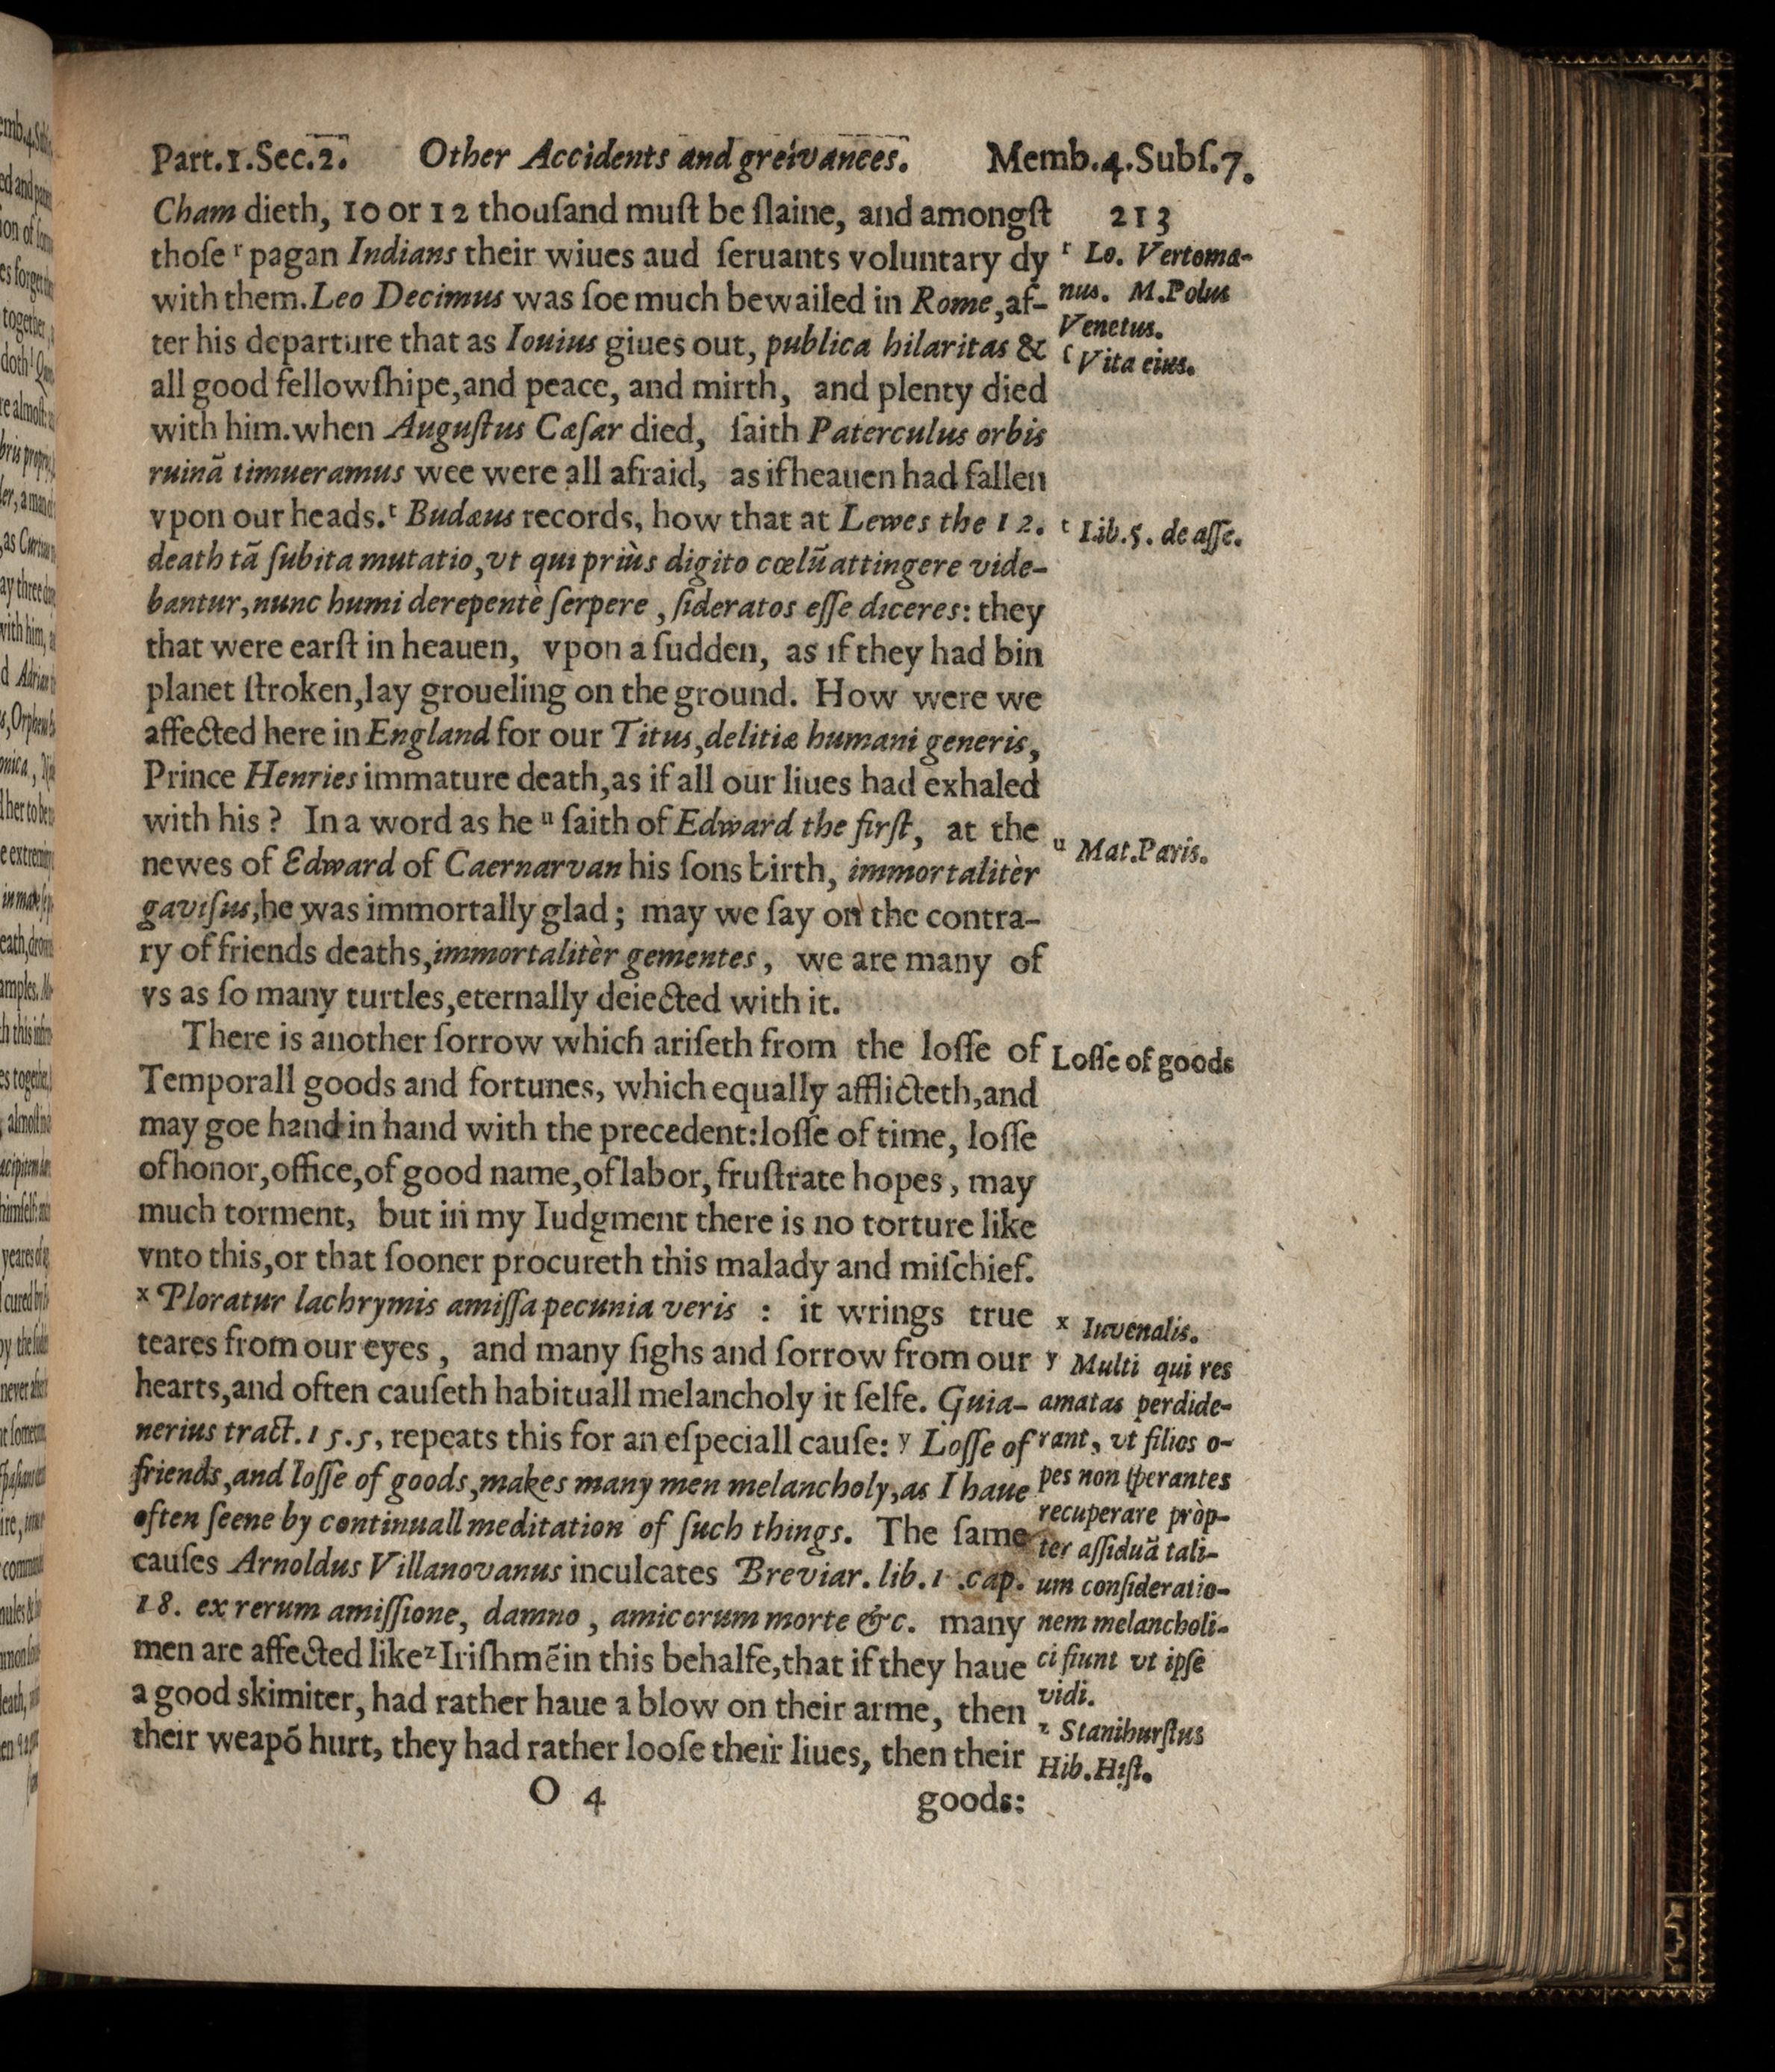 Part.1.Sec.2. Other Accidents and greivances. Memb.4.Subſ.7.
213
Cham dieth, 10 or 12 thouſand muſt be ſlaine, and amongſt
thoſe ʳ pagan Indians their wiues aud ſeruants voluntary dy
with them. Leo Decimus was ſoe much bewailed in Rome, af-
ter his departure that as Iouius giues out, publica hilaritas &
all good fellowſhipe, and peace, and mirth, and plenty died
with him. when Auguſtus Cæſar died, ſaith Paterculus orbis
ruinā timueramus wee were all afraid, as if heauen had fallen
vpon our heads. ᵗ Budæus records, how that at Lewes the 12.
death tā ſubita mutatio, vt qui priùs digito cœlū attingere vide-
bantur, nunc humi derepentè ſerpere, ſideratos eſſe diceres: they
that were earſt in heauen, vpon a ſudden, as if they had bin
planet ſtroken, lay groueling on the ground. How were we
affected here in England for our Titus, delitiæ humani generis,
Prince Henries immature death, as if all our liues had exhaled
with his? In a word as he ᵘ ſaith of Edward the firſt, at the
newes of Edward of Caernarvan his ſons birth, immortalitèr
gaviſus, he was immortally glad; may we ſay on the contra-
ry of friends deaths, immortalitèr gementes, we are many of
vs as ſo many turtles, eternally deiected with it.
There is another ſorrow which ariſeth from the loſſe of
Temporall goods and fortunes, which equally afflicteth, and
may goe hand in hand with the precedent: loſſe of time, loſſe
of honor, office, of good name, of labor, fruſtrate hopes, may
much torment, but in my Iudgment there is no torture like
vnto this, or that ſooner procureth this malady and miſchief.
ˣ Ploratur lachrymis amiſſa pecunia veris : it wrings true
teares from our eyes, and many ſighs and ſorrow from our
hearts, and often cauſeth habituall melancholy it ſelfe. Guia-
nerius tract. 15.5, repeats this for an eſpeciall cauſe: ʸ Loſſe of
friends, and loſſe of goods, makes many men melancholy, as I haue
often ſeene by continuall meditation of ſuch things. The ſame
cauſes Arnoldus Villanovanus inculcates Breviar. lib. 1 .cap.
18. ex rerum amiſſione, damno, amicorum morte &c. many
men are affected like ᶻ Iriſhmē in this behalfe, that if they haue
a good skimiter, had rather haue a blow on their arme, then
their weapō hurt, they had rather looſe their liues, then their
O 4 goods:
ʳ Lo. Vertoma-
nus. M. Polus
Venetus.
ſ Vita eius.
ᵗ Lib. 5. de aſſe.
ᵘ Mat. Paris.
Loſſe of goods
ˣ Iuvenalis.
ʸ Multi qui res
amatas perdide-
rant, vt filios o-
pes non ſperantes
recuperare pròp-
ter aſſiduā tali-
um conſideratio-
nem melancholi-
ci fiunt vt ipſe
vidi.
ᶻ Stanihurſtus
Hib. Hiſt.